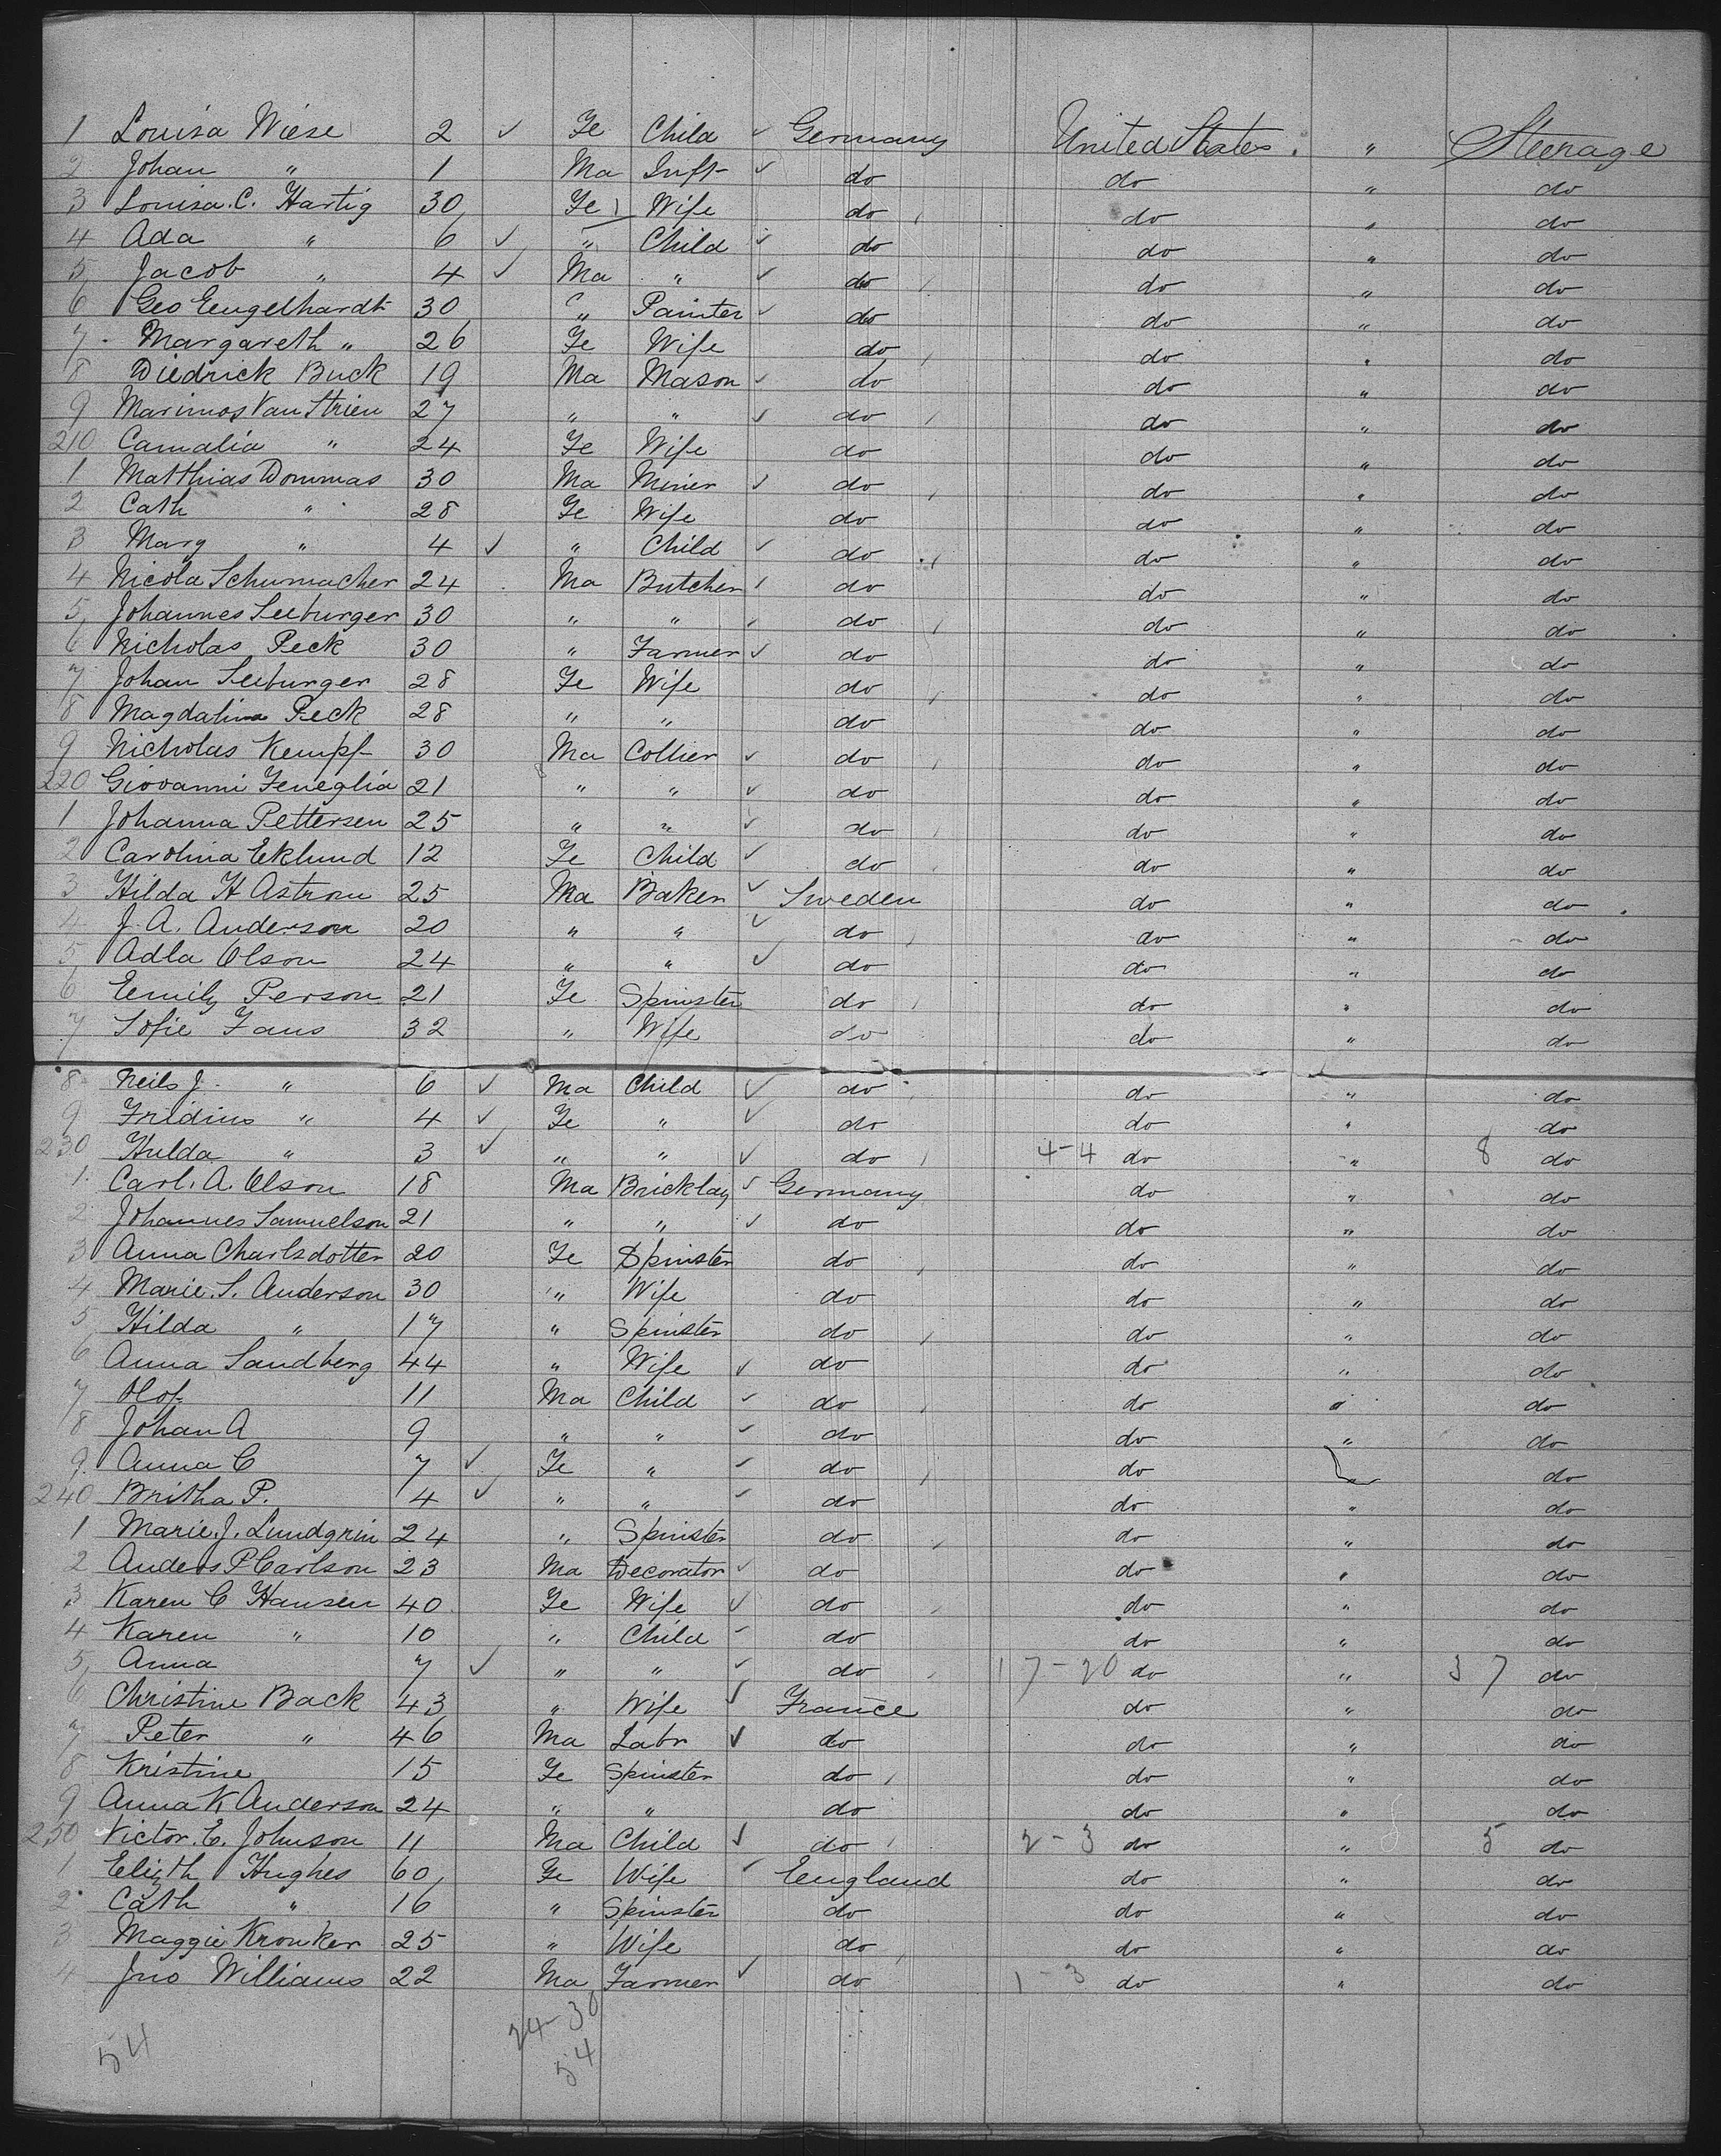 1 Louisa Wiese 2 ✓ Fe Child ✓ Germany United States. " Steerage
2 Johan " 1 Ma Inft ✓ do do " do
3 Louisa. C. Hartig 30 Fe Wife do do " do
4 Ada " 6 ✓ " Child ✓ do do " do
5 Jacob " 4 ✓ Ma " ✓ do do " do
6 Geo Eengelhardt 30 " Painter ✓ do do " do
7 Margareth " 26 Fe Wife do do " do
8 Diedrick Buck 19 Ma Mason ✓ do do " do
9 Marinos Van Strien 27 " " ✓ do do " do
210 Camalia " 24 Fe Wife do do " do
1 Matthias Dommas 30 Ma Miner ✓ do do " do
2 Cath " 28 Fe Wife do do " do
3 Marg " 4 ✓ " Child ✓ do do " do
4 Nicola Schumacher 24 Ma Butcher do do " do
5 Johannes Seeburger 30 " " do do " do
6 Nicholas Peck 30 " Farmer ✓ do do " do
7 Johan Seeburger 28 Fe Wife do do " do
8 Magdalina Peck 28 " " do do " do
9 Nicholas Kempf 30 Ma Collier ✓ do do " do
220 Giovanni Feneglia 21 " " ✓ do do " do
1 Johanna Pettersen 25 " " ✓ do do " do
2 Carolina Eklund 12 Fe Child ✓ do do " do
3 Hilda H Astrom 25 Ma Baker ✓ Sweden do " do
4 J. A. Anderson 20 " " ✓ do do " do
5 Adla Olson 24 " " ✓ do do " do
6 Eemily Person 21 Fe Spinster do do " do
7 Sofie Faus 32 " Wife do do " do
8 Neils J. " 6 ✓ Ma Child ✓ do do " do
9 Fridius " 4 ✓ Fe " ✓ do do " do
230 Hulda " 3 ✓ " " ✓ do 4-4 do " 8 do
1 Carl. A. Olson 18 Ma Bricklay ✓ Germany do " do
2 Johannes Samuelson 21 " " ✓ do do " do
3 Anna Charlsdotter 20 Fe Spinster do do " do
4 Marie. S. Anderson 30 " Wife do do " do
5 Hilda " 17 " Spinster do do " do
6 Anna Sandberg 44 " Wife ✓ do do " do
7 Olof 11 Ma Child ✓ do do " do
8 Johan A 9 " " ✓ do do " do
9 Anna C 7 ✓ Fe " ✓ do do " do
240 Britha P. 4 ✓ " " ✓ do do " do
1 Marie. J. Lundgrin 24 " Spinster do do " do
2 Anders P Carlson 23 Ma Decorator ✓ do do " do
3 Karen C Hansen 40 Fe Wife ✓ do do " do
4 Karen " 10 " Child ✓ do do " do
5 Anna 7 ✓ " " ✓ do 17-20 do " 37 do
6 Christine Back 43 " Wife ✓ France do " do
7 Peter " 46 Ma Labr ✓ do do " do
8 Kristine 15 Fe Spinster do do " do
9 Anna K Anderson 24 " " do do " do
250 Victor. E. Johnson 11 Ma Child ✓ do 2-3 do " 5 do
1 Elizth Hughes 60 Fe Wife ✓ Eengland do " do
2 Cath " 16 " Spinster do do " do
3 Maggie Kronker 25 " Wife do do " do
4 Jno Williams 22 Ma Farmer ✓ do 1-3 do " do
54 24-30
54